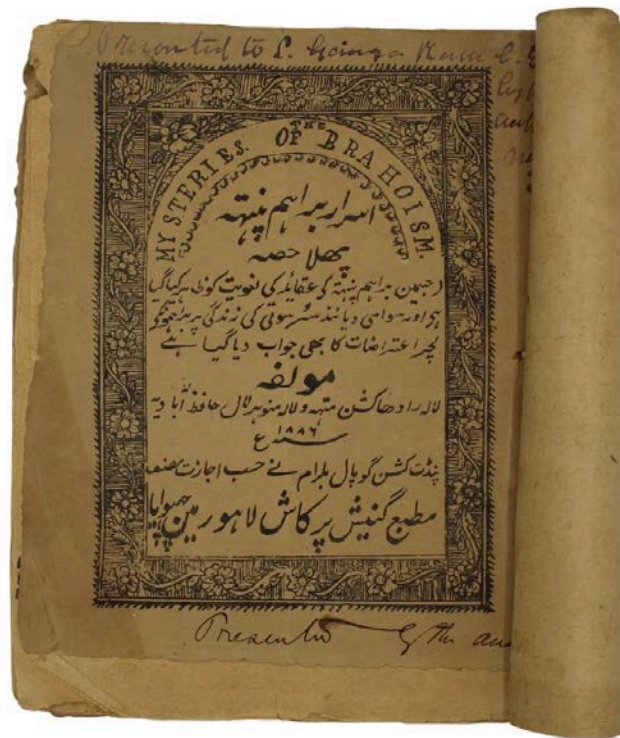 Presented to L. Ganga Ram C. E
by
MYSTERIES. OF THE BRAHOISM.
اسرار براہم پنتھ
پہلا حصہ
جسمین براہم پنتھ کی عقائد کی لغویت کو ظاہر کیا گیا
ہی اور سوامی دیانند سرسوتی کی زندگی پر
لچر اعتراضات کا بھی جواب دیا گیا ہے
مولفہ
لالہ رادھاکشن متہہ و لالہ منوہر لال حافظ آبادیہ
سنہ ۱۸۸۶ ع
پنڈت کشن گوپال بلرام نے حسب اجازت مصنف
مطبع گنیش پرکاش لاہور مین چہپوایا
Presented by the au